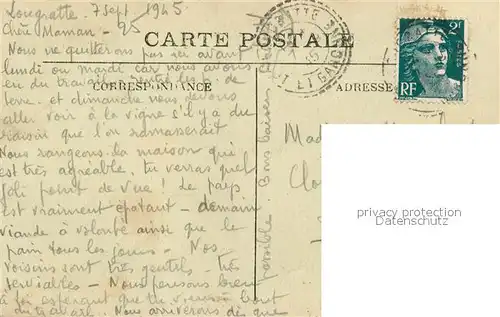 Lougratte, 7 Sept 1945
Chère Maman -
Nous ne quitterons pas ici avant
lundi ou mardi car nous avons
eu du travail
terre. et dimanche nous devons
aller voir à la vigne s'il y a du
raisin que l'on ramasserait
Nous rangeons la maison qui
est très agréable, tu verras quel
joli point de vue! Le pays
est vraiment épatant - demain
viande à volonté ainsi que le
pain tous les jours - Nos
voisins sont très gentils - très
serviables - Nous pensons bien
à toi espérant que tu
du travail. Nous arriverons dès que
possible. Bons baisers
CARTE POSTALE
CORRESPONDANCE
ADRESSE
2F
RF
POSTES
LOT ET GAR
Mad
Clo
privacy protection
Datenschutz